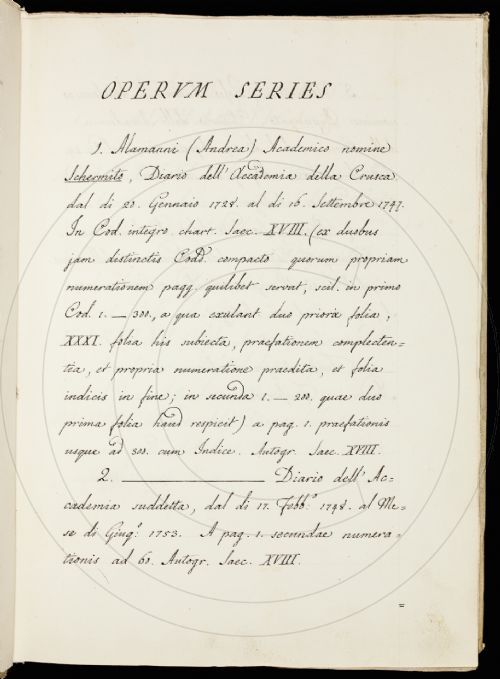 OPERVM SERIES
1. Alamanni (Andrea) Academico nomine
Schermito, Diario dell' Accademia della Crusca
dal di 20. Gennaio 1728. al di 16. Settembre 1747.
In Cod. integro chart. Saec. XVIII. (ex duobus
jam distinctis Codd. compacto quorum propriam
numerationem pagg. quilibet servat, scil. in primo
Cod. 1. — 300., a qua exulant duo priora folia,
XXXI. folia his subiecta, praefationem complecten-
tia, et propria numeratione praedita, et folia
indicis in fine; in secunda 1. — 200. quae duo
prima folia haud respicit) a pag. 1. praefationis
usque ad 300. cum Indice. Autogr. Saec. XVIII.
2. ——— Diario dell' Ac-
cademia suddetta, dal di 17. Febb.º 1748. al Me-
se di Giug.º 1753. A pag. 1. secundae numera-
tionis ad 60. Autogr. Saec. XVIII.